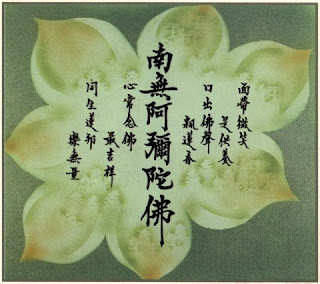 面帶微笑
是供養
口出佛聲
蓮
南無阿彌陀佛
心常念佛
最吉祥
同生蓮邦
樂無量